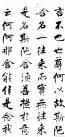 言不也世尊何以故斯陀
含名一往來而實無往來
是名斯陀含須菩提於意
云何阿那含能作是念我